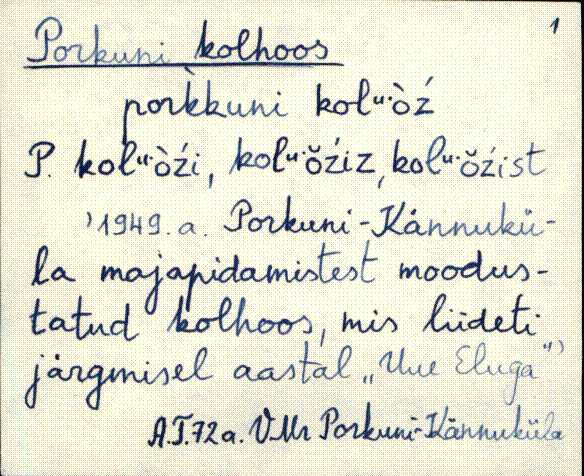 1
Porkuni kolhoos
pork̀kuni kolᵘ·òź
P. kolᵘ·òźi, kolᵘ·ŏźiz, kolᵘ·ŏźist
'1949. a. Porkuni-Kännukü-
la majapidamistest moodus-
tatud kolhoos, mis liideti
järgmisel aastal „Uue Eluga"'
A.T. 72 a. VMr Porkuni-Kännuküla